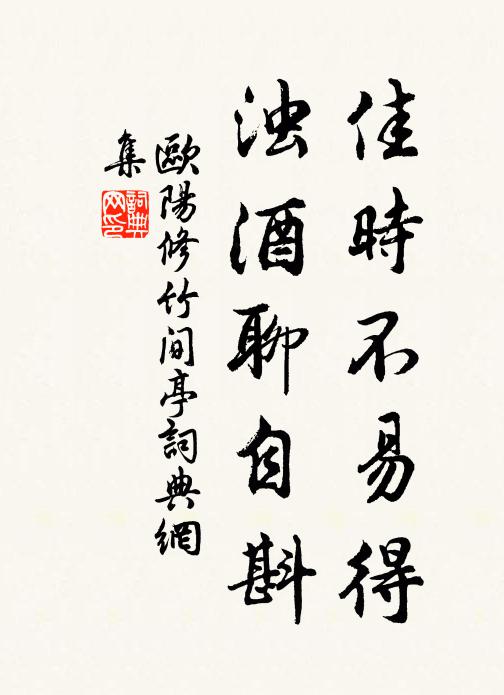 佳時不易得
浊酒聊自斟
歐陽修竹間亭詞典網
集
詞典
网印